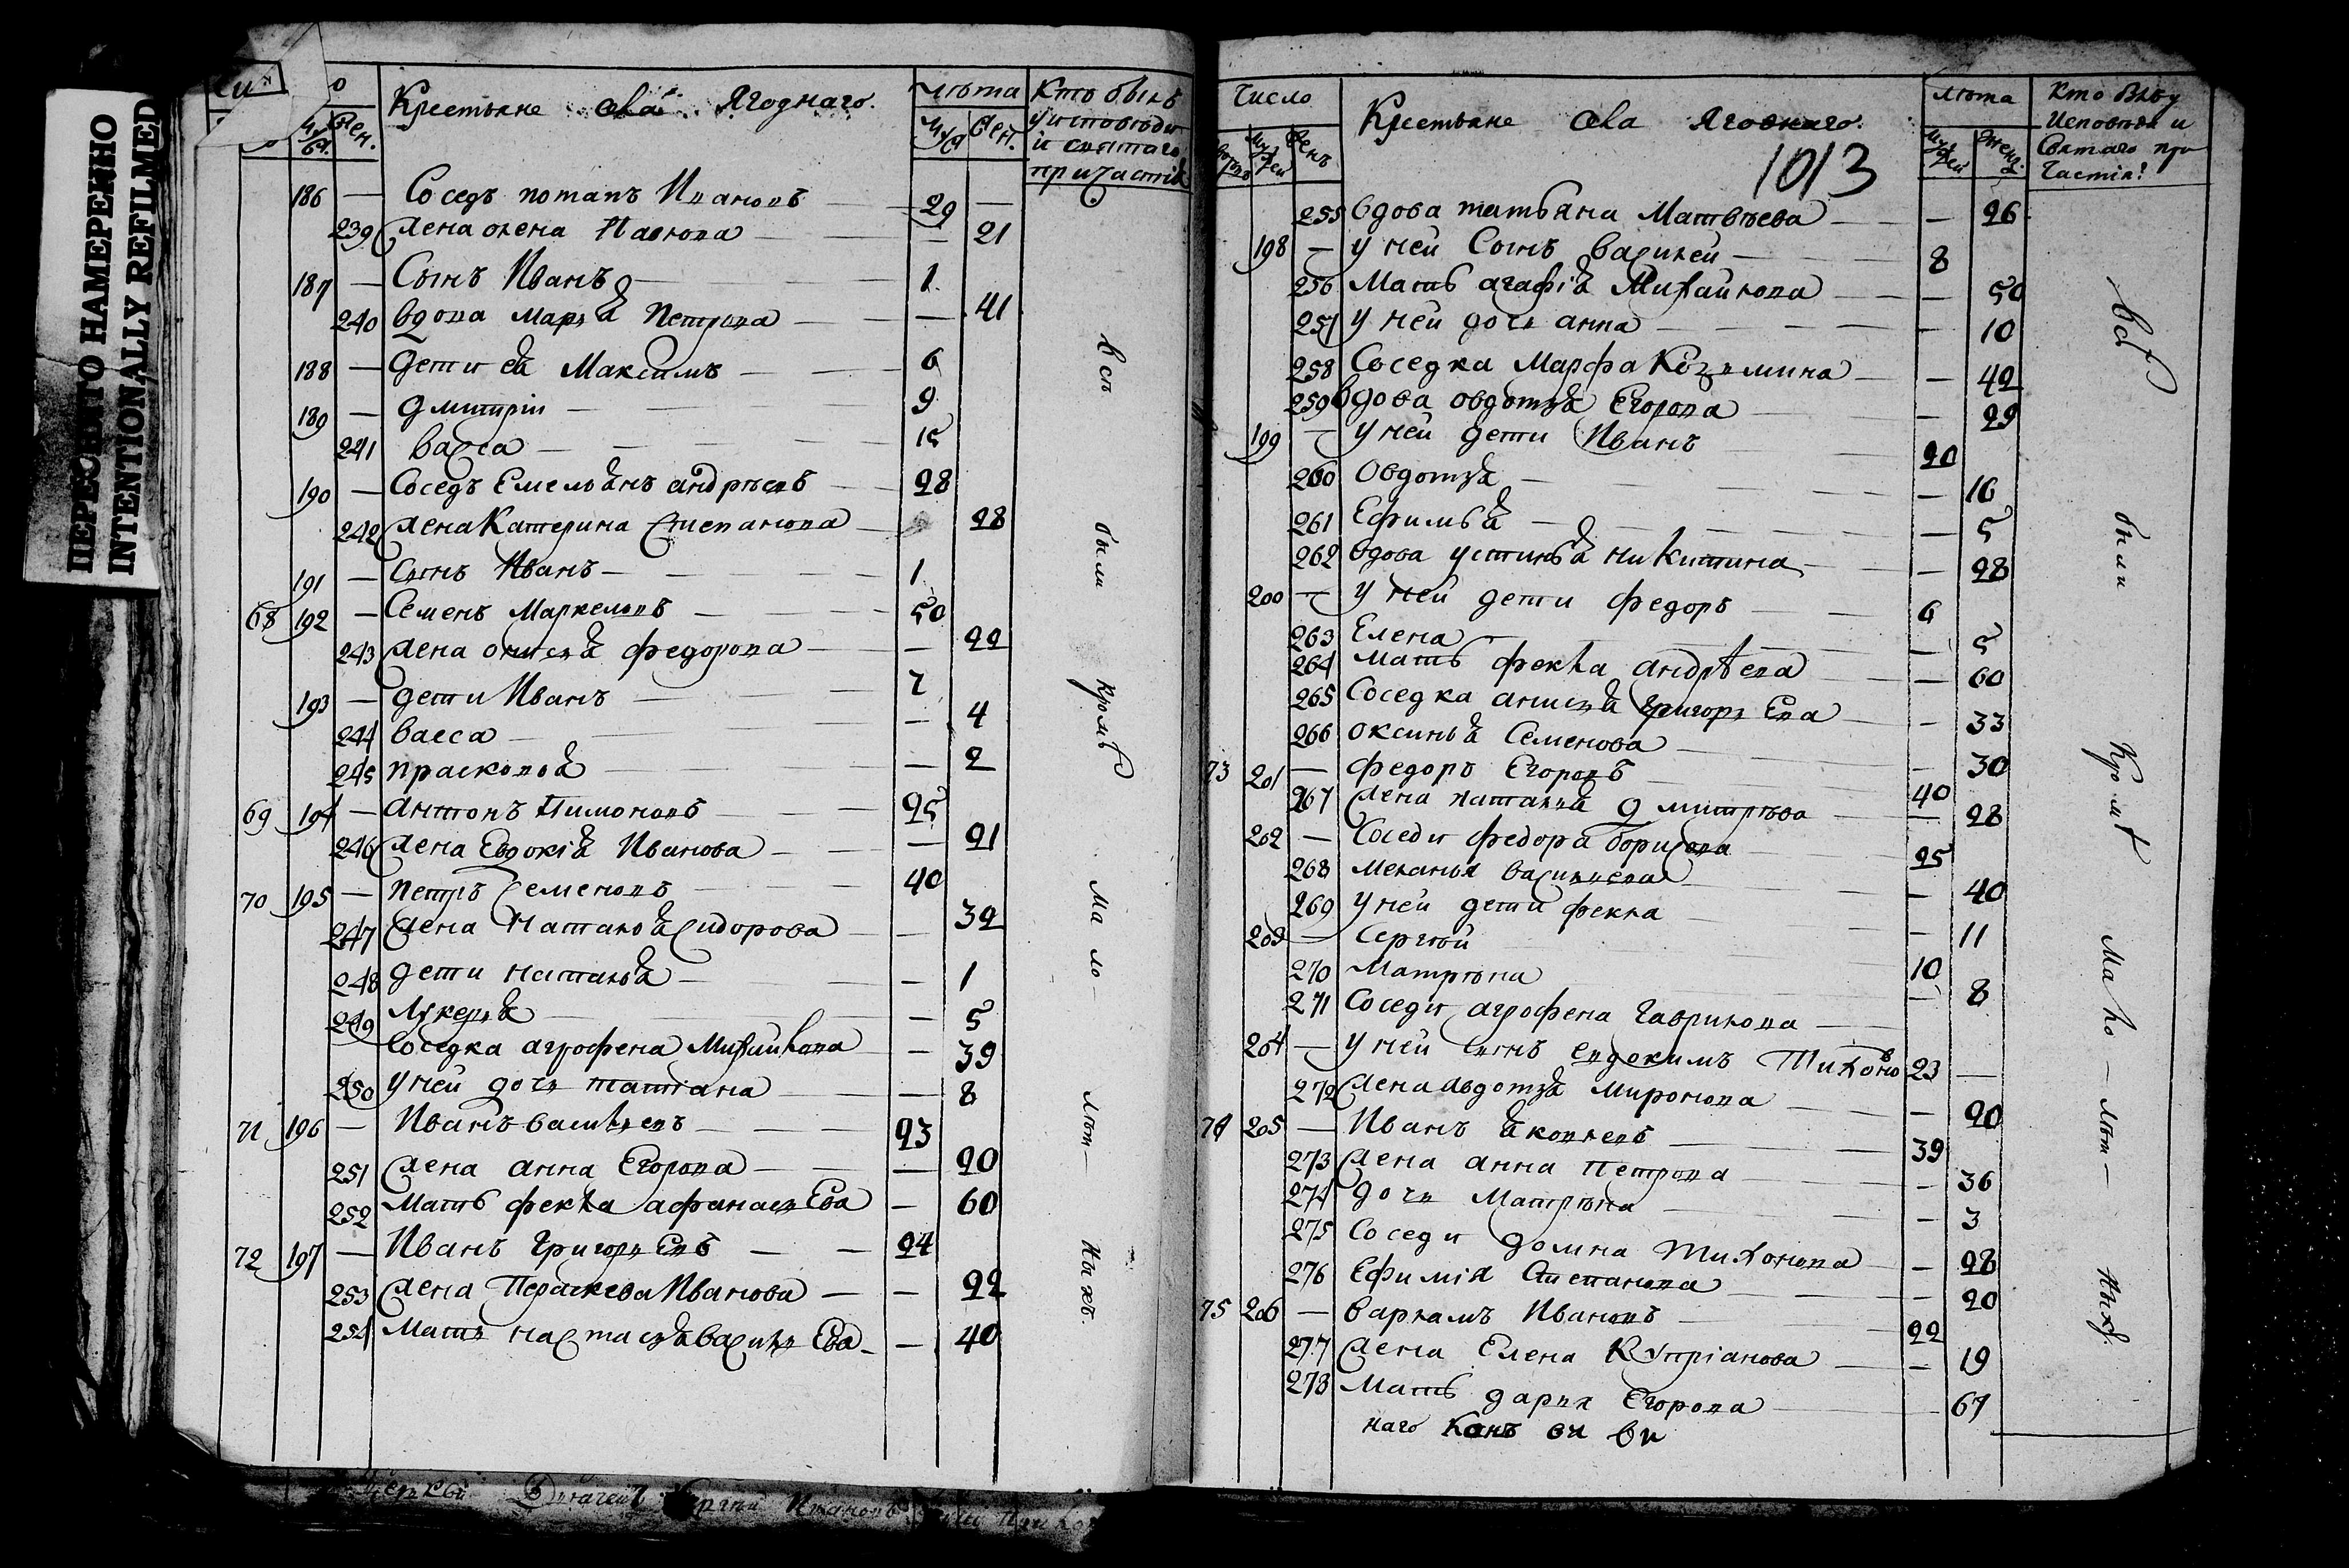 ПЕРЕСНЯТО НАМЕРЕННО
INTENTIONALLY REFILMED
Крестьяне села Ягоднаго.
лѣта
Кто былъ
у исповѣди
и святаго
причастія
муж
жен.
186 — Соседъ потапъ Ивановъ — 29 —
239 жена олена Павлова — — 21
187 — Сынъ Иванъ — 1
240 вдова Марья Петрова — — 41
188 — дети ея Максимъ — 6
189 — дмитрiи — 9
241 васса — 15
190 — Соседъ Емельянъ андрѣевъ — 28
242 жена Катерина Степанова — 28
191 — Сынъ Иванъ — 1
68 192 — Семенъ Маркеловъ — 50
243 жена онисья федорова — — 22
193 — дети Иванъ — 7
244 васса — — 4
245 прасковья — — 2
69 194 — антонъ Пимоновъ — 25
246 жена Евдокiя Иванова — — 21
70 195 — петръ Семеновъ — 40
247 жена Наталья Сидорова — — 32
248 дети наталья — — 1
249 Лукерья — — 5
Соседка агрофена Михаилова — 39
250 у ней дочь татiана — — 8
71 196 — Иванъ васильевъ — 23
251 жена анна Егорова — — 20
252 Мать фекла афанасьЕва — 60
72 197 — Иванъ ГригорьЕвъ — 24
253 жена Парасковья Иванова — — 22
254 Мать настасья васильЕва — — 40
всѣ
были
кромѣ
мало-
лѣт-
ныхъ.
Число
Крестьяне села Ягоднаго.
1013
лѣта
Кто былъ у
Исповѣди и
Святаго при
частiя!
255 вдова татьяна Матвѣева — — 26
198 — у ней Сынъ василей — 8
256 Мать агафiя Михаилова — — 50
257 у ней дочь анна — — 10
258 Соседка Марфа Козьмина — — 42
259 вдова овдотья Егорова — 29
199 — у ней дети Иванъ 20
260 Овдотья — — 16
261 Ефимья — — 5
262 вдова устинья никитина — — 28
200 — у ней дети федоръ — 6
263 Елена — — 5
264 мать фекла андрѣева — — 60
265 Соседка анисья ГригорьЕва — — 33
266 оксинья Семенова — — 30
73 201 — федоръ Егоровъ 40
267 жена наталья дмитрѣва — — 28
202 — Соседи федора борисова 25
268 меланья васильева — 40
269 у ней дети фекла — 11
203 — Сергѣй 10
270 Матрѣна — 8
271 Соседи агрофена Гаврилова —
204 — у ней сынъ евдокимъ Тихоновъ 23 —
272 жена авдотья Миронова — — 20
74 205 — Иванъ яковлевъ 39
273 жена анна Петрова — — 36
274 дочь Матрѣна — 3
275 Соседи домна Тихонова — — 28
276 Ефимiя Степанова — — 20
75 206 — варламъ Ивановъ 22
277 жена Елена Купрiанова — — 19
278 Мать дарья Егорова — 67
наго
всѣ
были
Кромѣ
мало-
лѣт-
ныхъ
Церкви Сергѣй Ивановъ